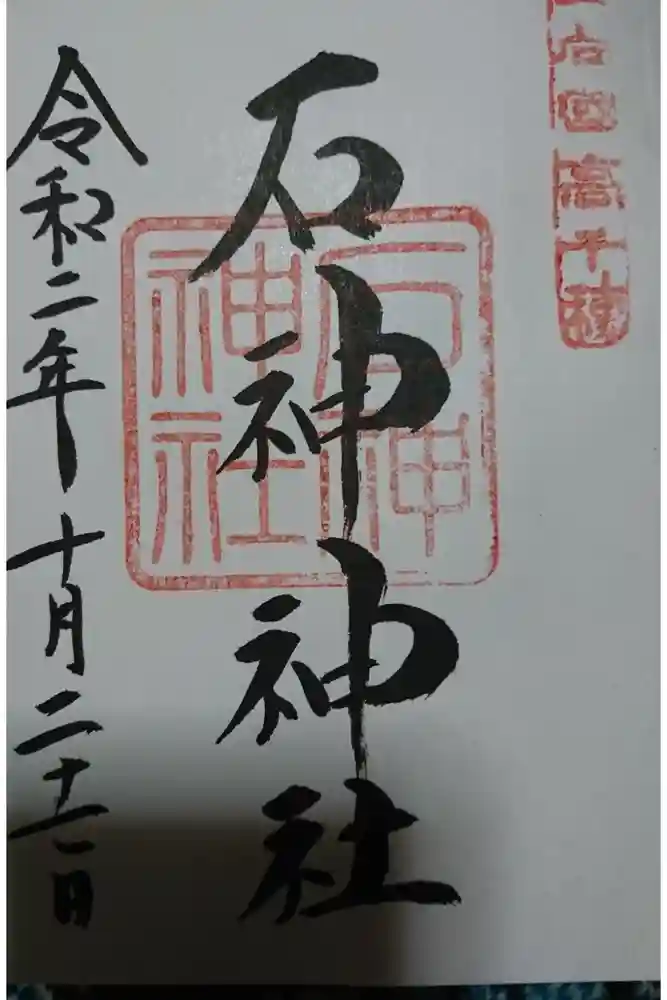 向國高千穂
石神神社
石神
神社
令和二年十月二十一日